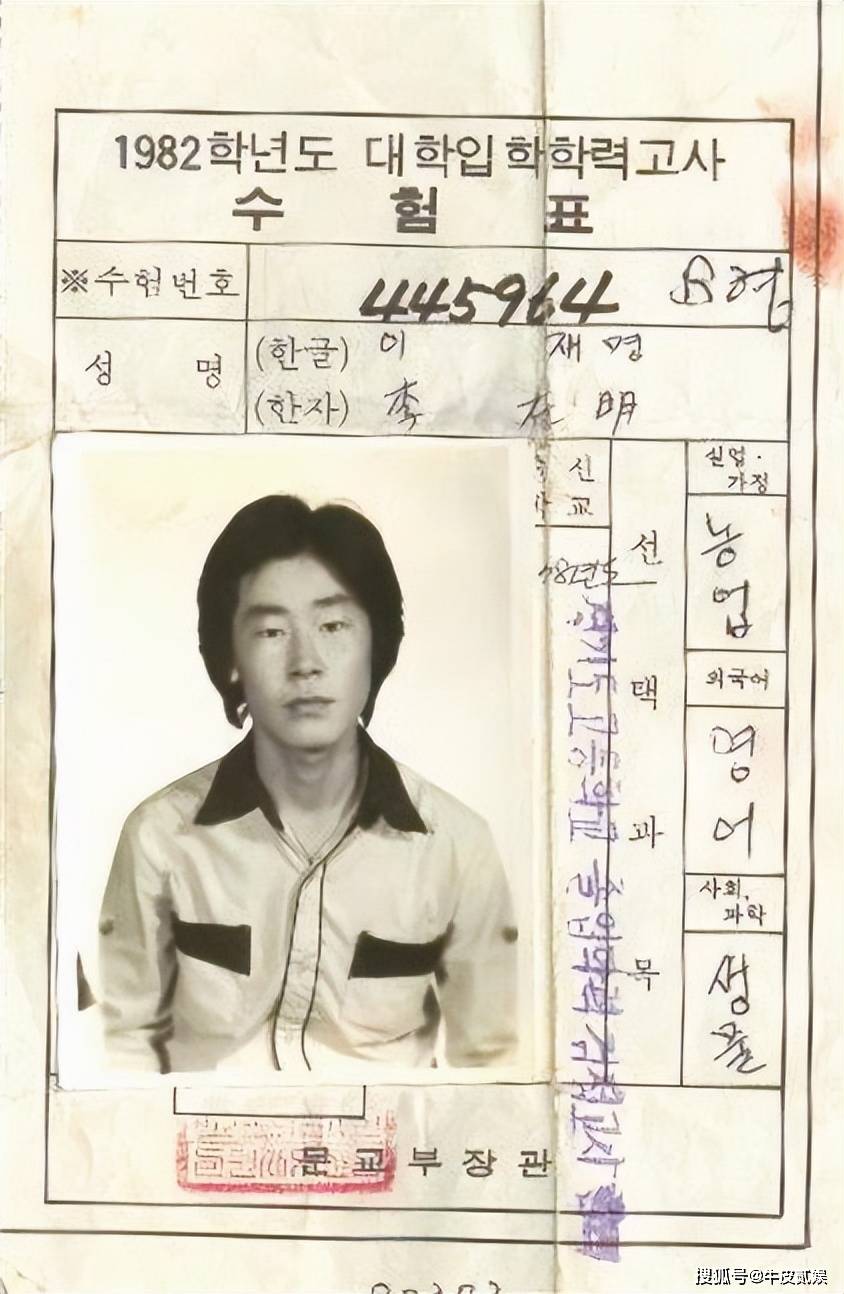 1982학년도 대학입학학력고사
수 험 표
※수험번호 445964 B형
성 명 (한글) 이 재 명
(한자) 李 在 明
신
교
선택과목
실업·
가정
농업
외국어
영어
사회,
과학
생물
고등학교 졸업학력 검정고시
문교부장관
搜狐号@牛皮贰娱